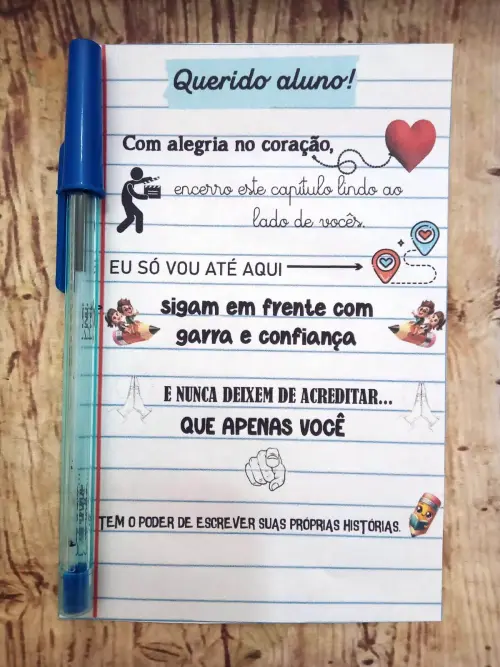 Querido aluno!
Com alegria no coração,
encerro este capítulo lindo ao
lado de vocês.
EU SÓ VOU ATÉ AQUI
sigam em frente com
garra e confiança
E NUNCA DEIXEM DE ACREDITAR...
QUE APENAS VOCÊ
TEM O PODER DE ESCREVER SUAS PRÓPRIAS HISTÓRIAS.